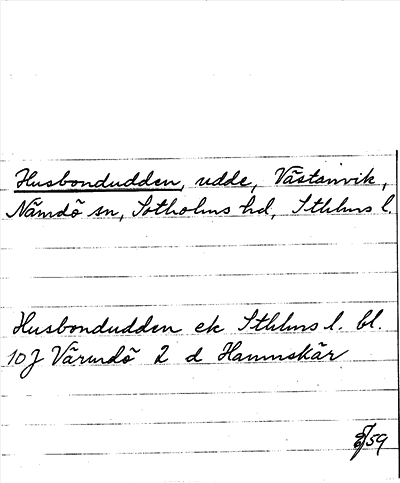 Husbondudden, udde, Västanvik,
Nämdö sn, Sotholms hd, Sthlms l.
Husbondudden ek Sthlms l. bl.
10J Värmdö 2 d Hammskär
/59